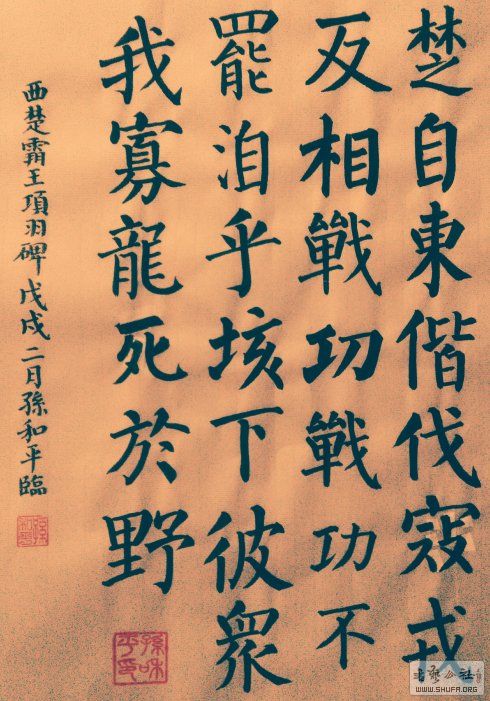 楚自東偕伐寇戎
反相戰功戰功不
罷洎乎垓下彼衆
我寡龍死於野
西楚霸王項羽碑戊戌二月孫和平臨
WWW.SHUFA.ORG